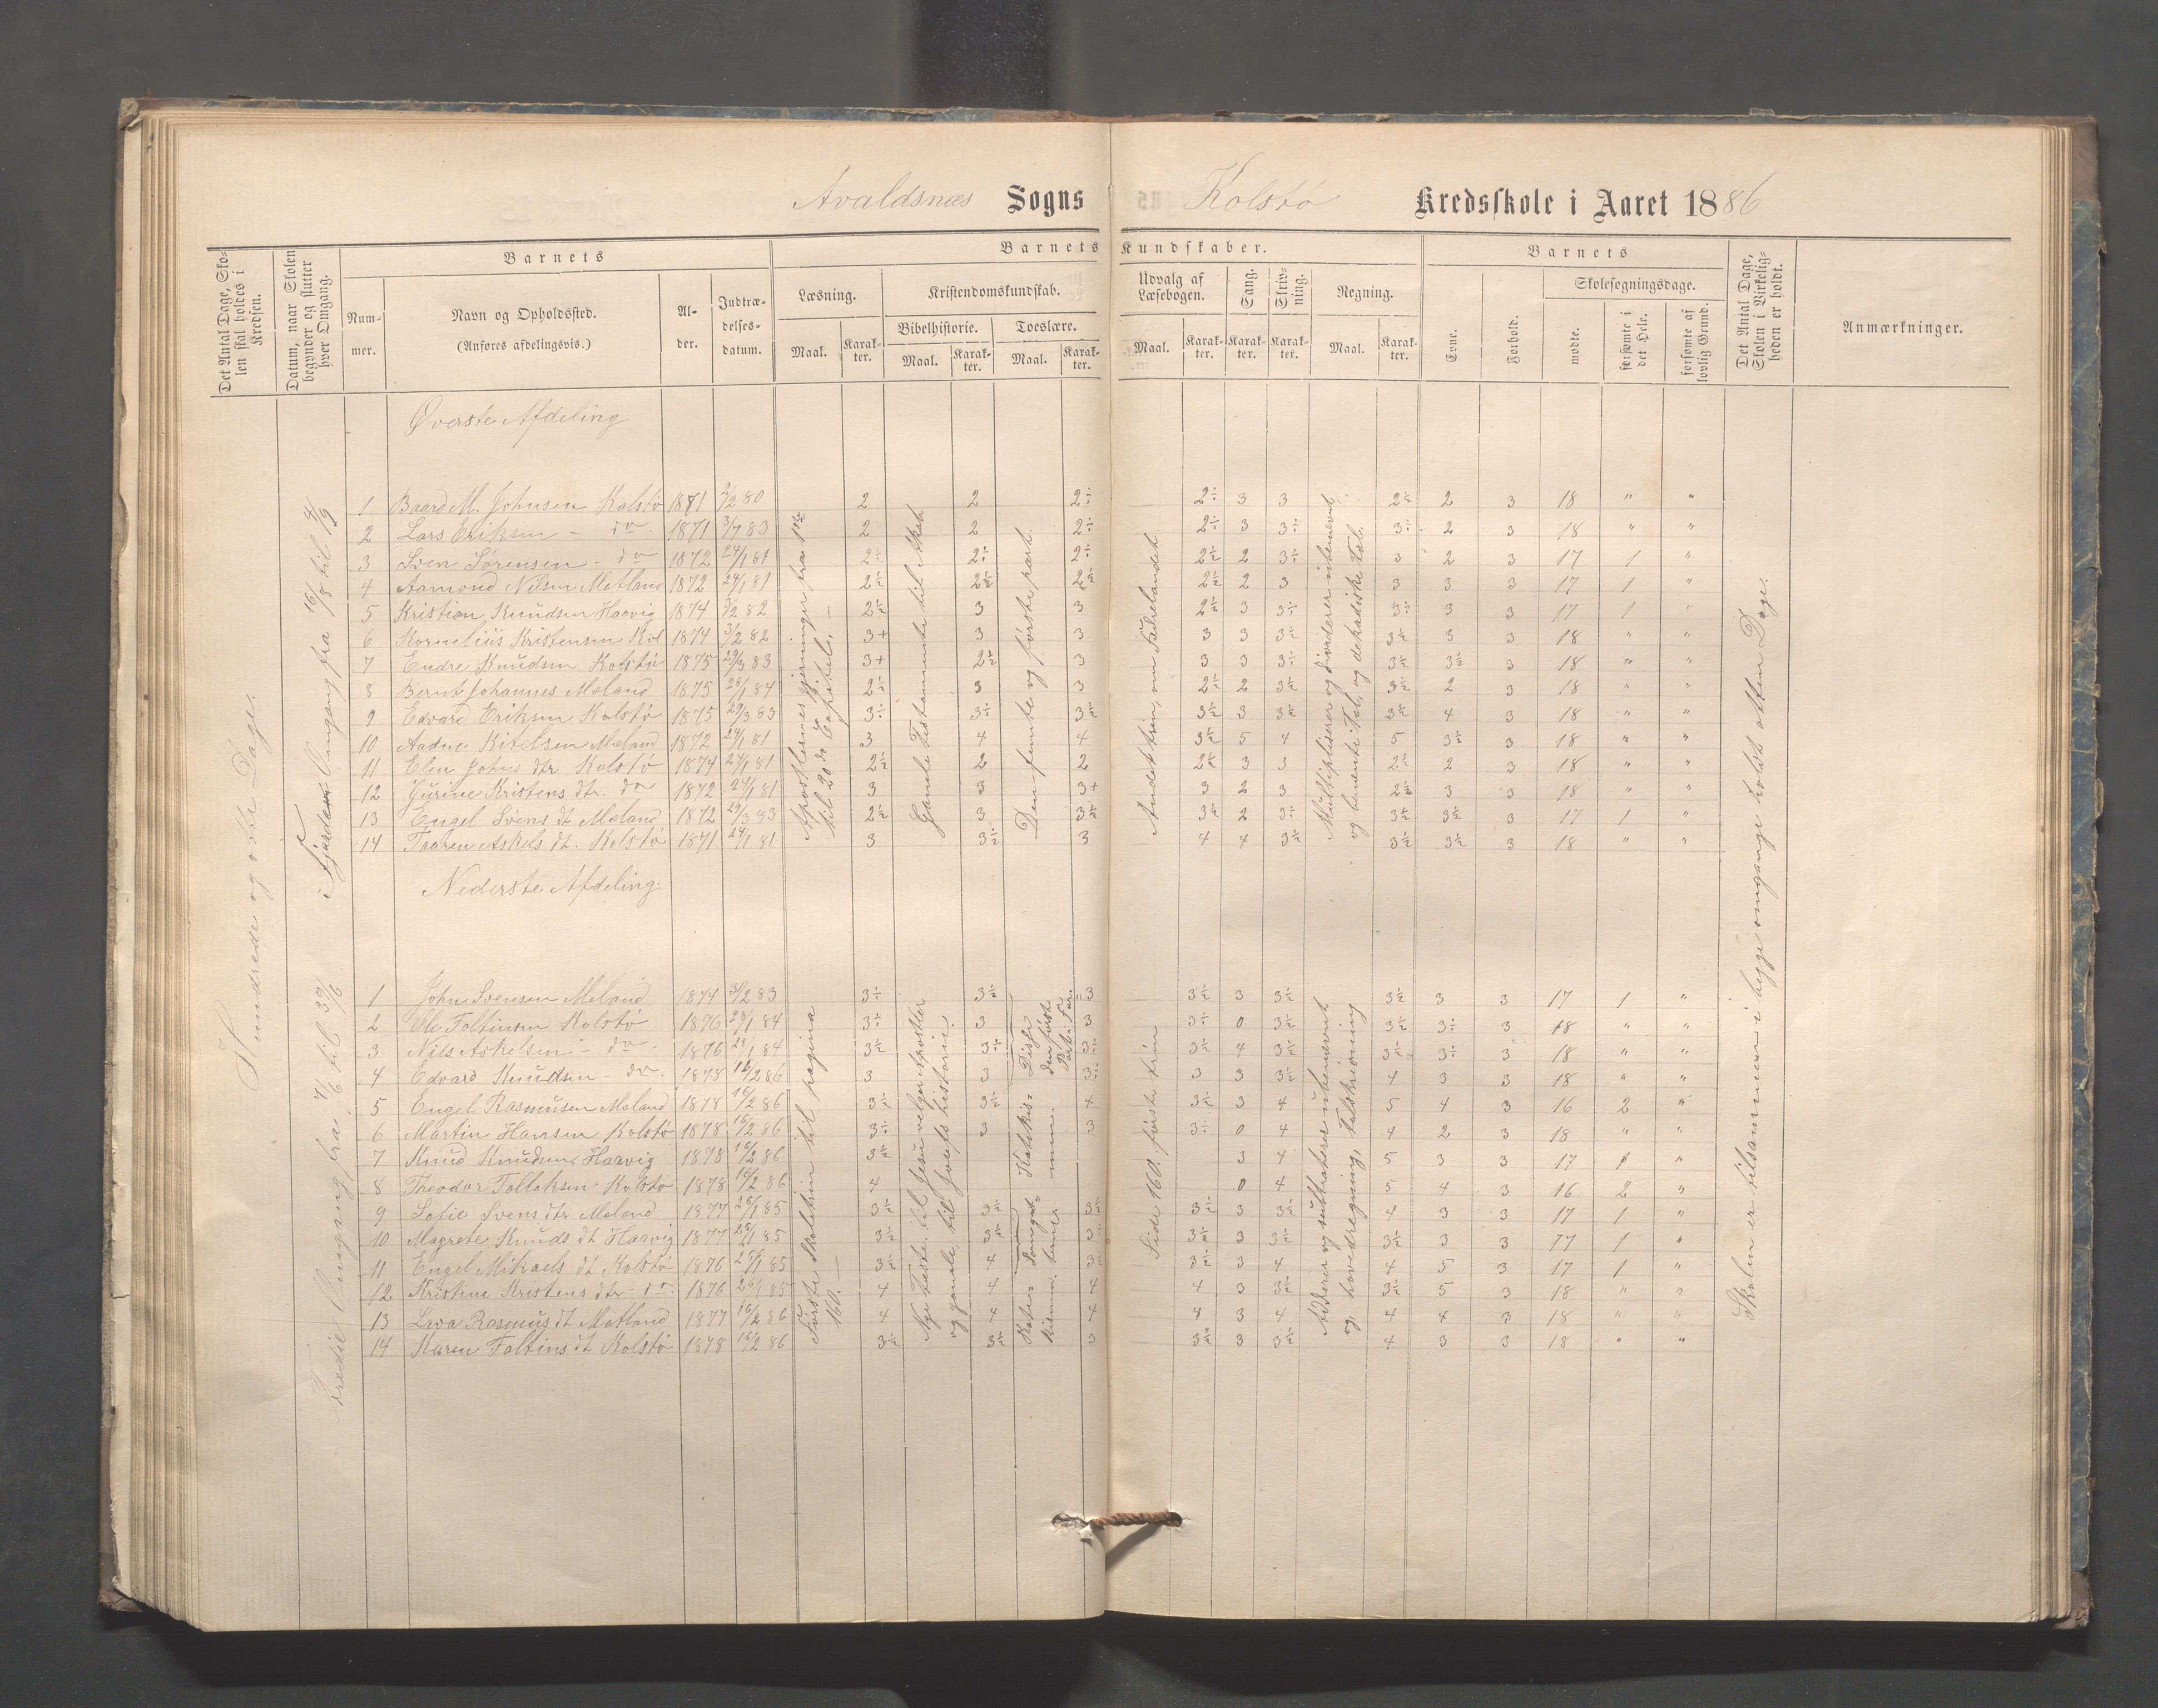 Avaldsnæs Sogns Kolstø Kredsskole i Aaret 1886
Det Antal Dage, Skolen skal holdes i Kredsen.
Datum, naar Skolen begynder og slutter hver Omgang.
Barnets
Nummer.
Navn og Opholdssted.
(Anføres afdelingsvis.)
Alder.
Indtrædelsesdatum.
Barnets Kundskaber.
Læsning.
Maal. Karakter.
Kristendomskundskab.
Bibelhistorie.
Maal. Karakter.
Troeslære.
Maal. Karakter.
Udvalg af Læsebogen.
Maal. Karakter.
Sang.
Karakter.
Skrivning.
Karakter.
Regning.
Maal. Karakter.
Barnets
Evne.
Forhold.
Skolesøgningsdage.
mødte.
forsømte i det Hele.
forsømte af lovlig Grund.
Det Antal Dage, Skolen i Virkeligheden er holdt.
Anmærkninger.
Hundrede og otte Dage.
i Fjerde Omgang fra 16/8 til 4/9
Tredie Omgang fra 7/6 til 30/6
Øverste Afdeling
1 Baard M. Johnsen Kolstø 1871 2/2 80 2 2 2÷ 2÷ 3 3 2½ 2 3 18 " "
2 Lars Eriksen - do 1871 3/7 83 2 2 2÷ 2÷ 3 3÷ 3÷ 2 3 18 " "
3 Sven Sørensen - do 1872 24/1 81 2÷ 2÷ 2÷ 2½ 2 3÷ 3 2 3 17 1 "
4 Aamond Nilsen Matland 1872 24/1 81 2½ 2½ 2½ 2½ 2 3 3 3 3 17 1 "
5 Kristian Knudsen Haavig 1874 3/2 82 2½ 3 3 2½ 3 3÷ 3÷ 3 3 17 1 "
6 Kornelius Kristensen Kol 1874 3/2 82 3+ 3 3 3 3 3½ 3½ 3 3 18 " "
7 Endre Knudsen Kolstø 1875 29/3 83 3+ 2½ 3 3 3 3÷ 3½ 3½ 3 18 " "
8 Bernt Johannes Meland 1875 28/1 84 2½ 3 3 2½ 2 3½ 3½ 2 3 18 " "
9 Edvard Eriksen Kolstø 1875 29/3 83 3÷ 3÷ 3½ 3½ 3 3½ 3½ 4 3 18 " "
10 Aadne Kitelsen Meland 1872 24/1 81 3 4 4 3½ 5 4 5 3½ 3 18 " "
11 Elen Johns dtr Kolstø 1874 24/1 81 2½ 2 2 2½ 3 3 2½ 2 3 18 " "
12 Gurine Kristens dtr. do 1872 24/1 81 3 3 3+ 3 2 3 2½ 3 3 18 " "
13 Engel Svens dt Meland 1872 29/3 83 2½ 3 3½ 3½ 2 3÷ 3½ 3½ 3 17 1 "
14 Taaren Askels dt. Kolstø 1871 24/1 81 3 3½ 3 4 4 3½ 3½ 3½ 3 18 " "
Apostlernes gjerninger fra 1ste til 20de Kapitel.
Gamle Testamente til Akab
Den femte og første part.
Andet trin, om Fædrelandet.
Multipliserer og dividerer i ubenævnt og benævnte Tal, og dekadiske Tal.
Nederste Afdeling:
1 John Svensen Meland 1874 31/2 83 3÷ 3½ 3 3½ 3 3½ 3½ 3 3 17 1 "
2 Ole Foltinsen Kolstø 1876 28/1 84 3÷ 3 3 3÷ 0 3½ 3½ 3÷ 3 18 " "
3 Nils Askelsen - do - 1876 28/1 84 3½ 3÷ 3÷ 3½ 4 3½ 3½ 3÷ 3 18 " "
4 Edvard Knudsen - do - 1878 16/2 86 3 3 3÷ 3 3 3½ 4 3 3 18 " "
5 Engel Rasmusen Meland 1878 16/2 86 3½ 3½ 4 3½ 3 4 5 4 3 16 2 "
6 Martin Hansen Kolstø 1878 16/2 86 3÷ 3 3 3÷ 0 4 4 2 3 18 " "
7 Knud Knudsen Haavig 1878 16/2 86 3½ 3 4 5 3 3 17 1 "
8 Theodor Tollaksen Kolstø 1878 16/2 86 4 0 4 5 4 3 16 2 "
9 Sofie Svens dtr Meland 1877 26/1 85 3½ 3½ 3½ 3½ 3 3½ 4 3 3 17 1 "
10 Magrete Knuds dt Haavig 1877 26/1 85 3½ 3½ 3÷ 3½ 3 3½ 3½ 3 3 17 1 "
11 Engel Mikaels dt Kolstø 1876 26/1 85 3½ 4 3½ 3½ 3 4 4 5 3 17 1 "
12 Kristine Kristens dtr - do - 1876 26/1 85 4 4 4 4 3 3½ 3½ 5 3 18 " "
13 Lava Rasmus dt Matland 1877 16/2 86 4 4 4 4 3 4 4 4 3 18 " "
14 Karen Foltins dt Kolstø 1878 16/2 86 3½ 3½ 3 3½ 3 3½ 4 3 3 18 " "
Første Skoletrin til pagina 160.
Nye Testa. til Jesu velger Apostler og gamle til Josefs historie.
Side 160. første trin
Adderer og subtraherer ubenævnt og hovedregning, Talskrivning
Skolen er tilsammen i begge omgange holdt otten Dage.